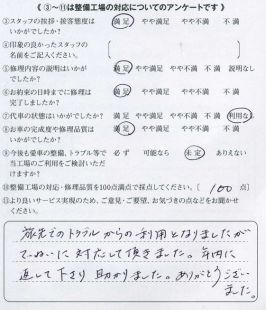 《 ③～⑪は整備工場の対応についてのアンケートです 》
③スタッフの挨拶・接客態度は 満足 やや満足 やや不満 不満
いかがでしたか？
④印象の良かったスタッフの
名前をご記入ください。 〔 〕
⑤修理内容の説明はいかが 満足 やや満足 やや不満 不満 説明なし
でしたか？
⑥お約束の日時までに修理は 満足 やや満足 やや不満 不満
完了しましたか？
⑦代車の状態はいかがでしたか？ 満足 やや満足 やや不満 不満 利用なし
⑧お車の完成度や修理品質は 満足 やや満足 やや不満 不満
いかがでしたか？
⑨今後も愛車の整備、トラブル等で 必ず 可能なら 未定 ありえない
当工場のご利用をご検討いただ
けますか？
⑩整備工場の対応・修理品質を100点満点で採点してください。〔 100 点〕
⑪より良いサービス実現のため、ご意見・ご要望、お気づきの点などをお聞かせ
ください。
旅先でのトラブルからの利用となりましたが
ていねいに対応して頂きました。年内に
直して下さり助かりました。ありがとうござい
ました。